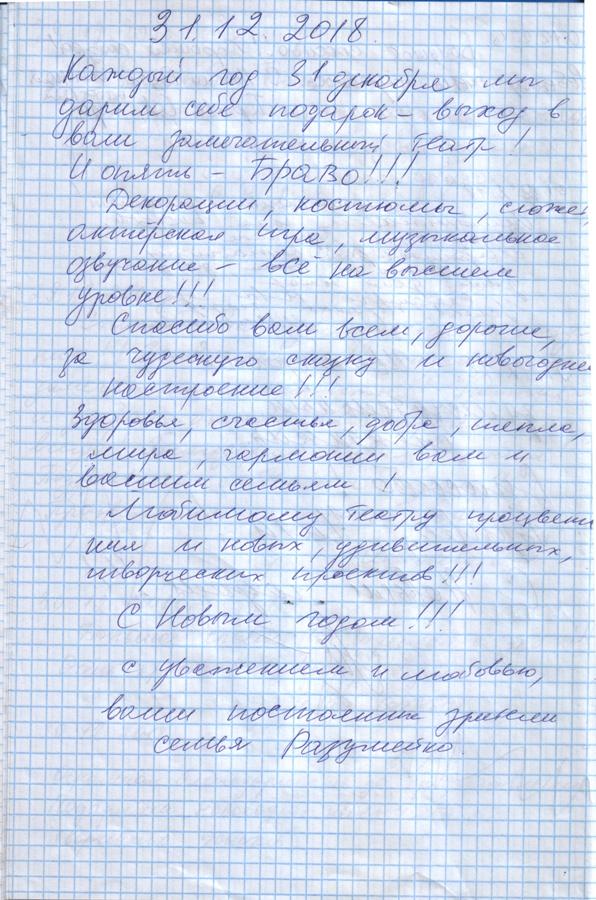 31.12.2018.
Каждый год 31 декабря мы
дарим себе подарок – выход в
ваш замечательный Театр!
И опять – БРАВО!!!
Декорации, костюмы, сюжет,
актёрская игра, музыкальное
озвучание – всё на высшем
уровне!!!
Спасибо вам всем, дорогие,
за чудесную сказку и новогоднее
настроение!!!
Здоровья, счастья, добра, тепла,
мира, гармонии вам и
вашим семьям!
Любимому Театру процвета
ния и новых, удивительных,
творческих проектов!!!
С Новым годом!!!
с уважением и любовью,
ваши постоянные зрители
семья Разумейко.